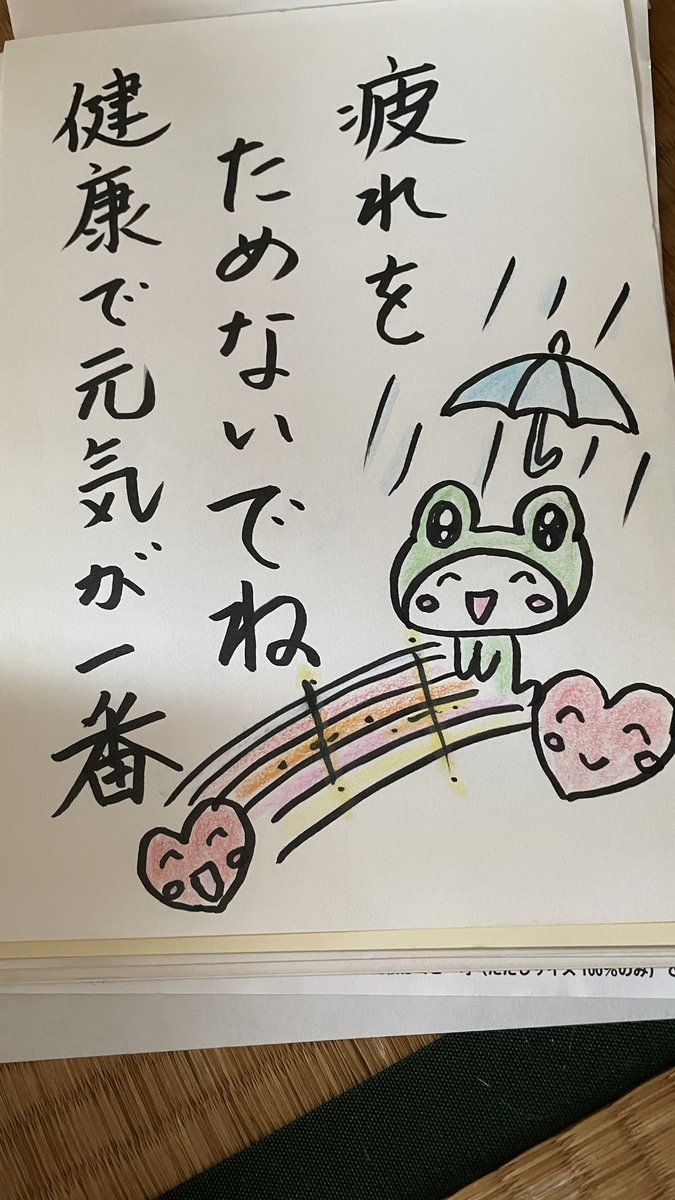 疲れを
ためないでね
健康で元気が一番
(ただしサイズ100%のみ)で